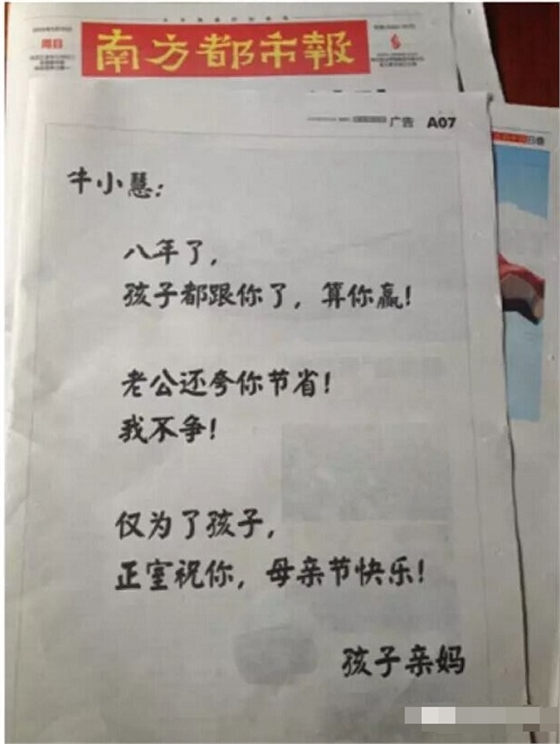 周日
南方都市報
广告 A07
牛小慧：
八年了，
孩子都跟你了，算你赢！
老公还夸你节省！
我不争！
仅为了孩子，
正室祝你，母亲节快乐！
孩子亲妈